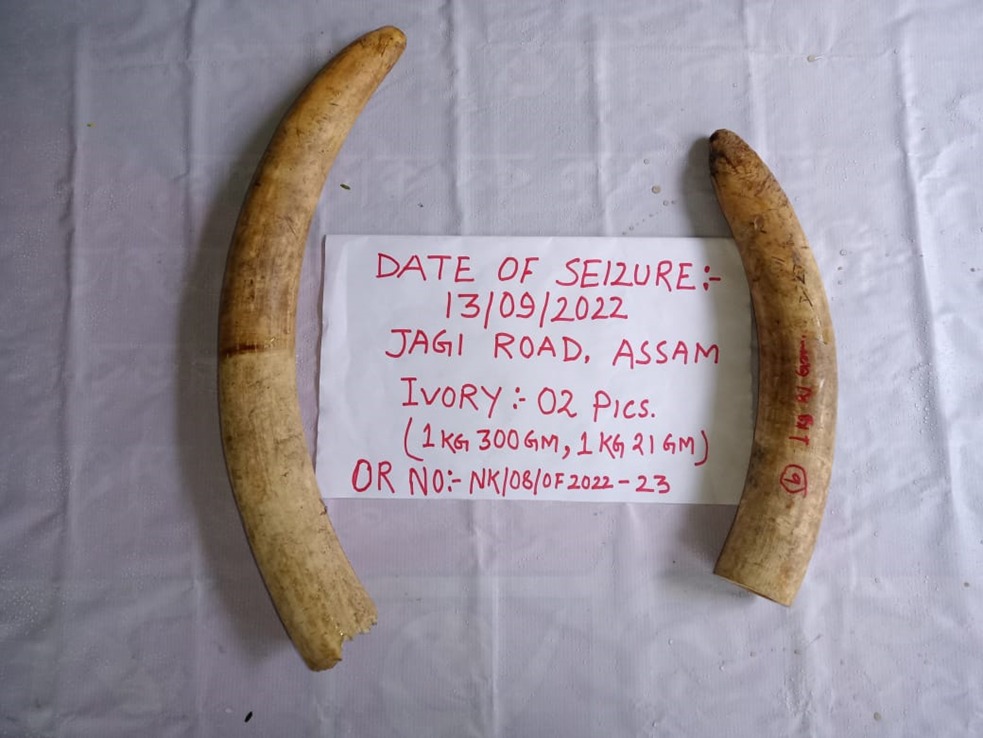 DATE OF SEIZURE:-
13/09/2022
JAGI ROAD, ASSAM
IVORY:- 02 PICS.
(1 KG 300 GM, 1 KG 21 GM)
OR NO:- NK/08/OF 2022-23